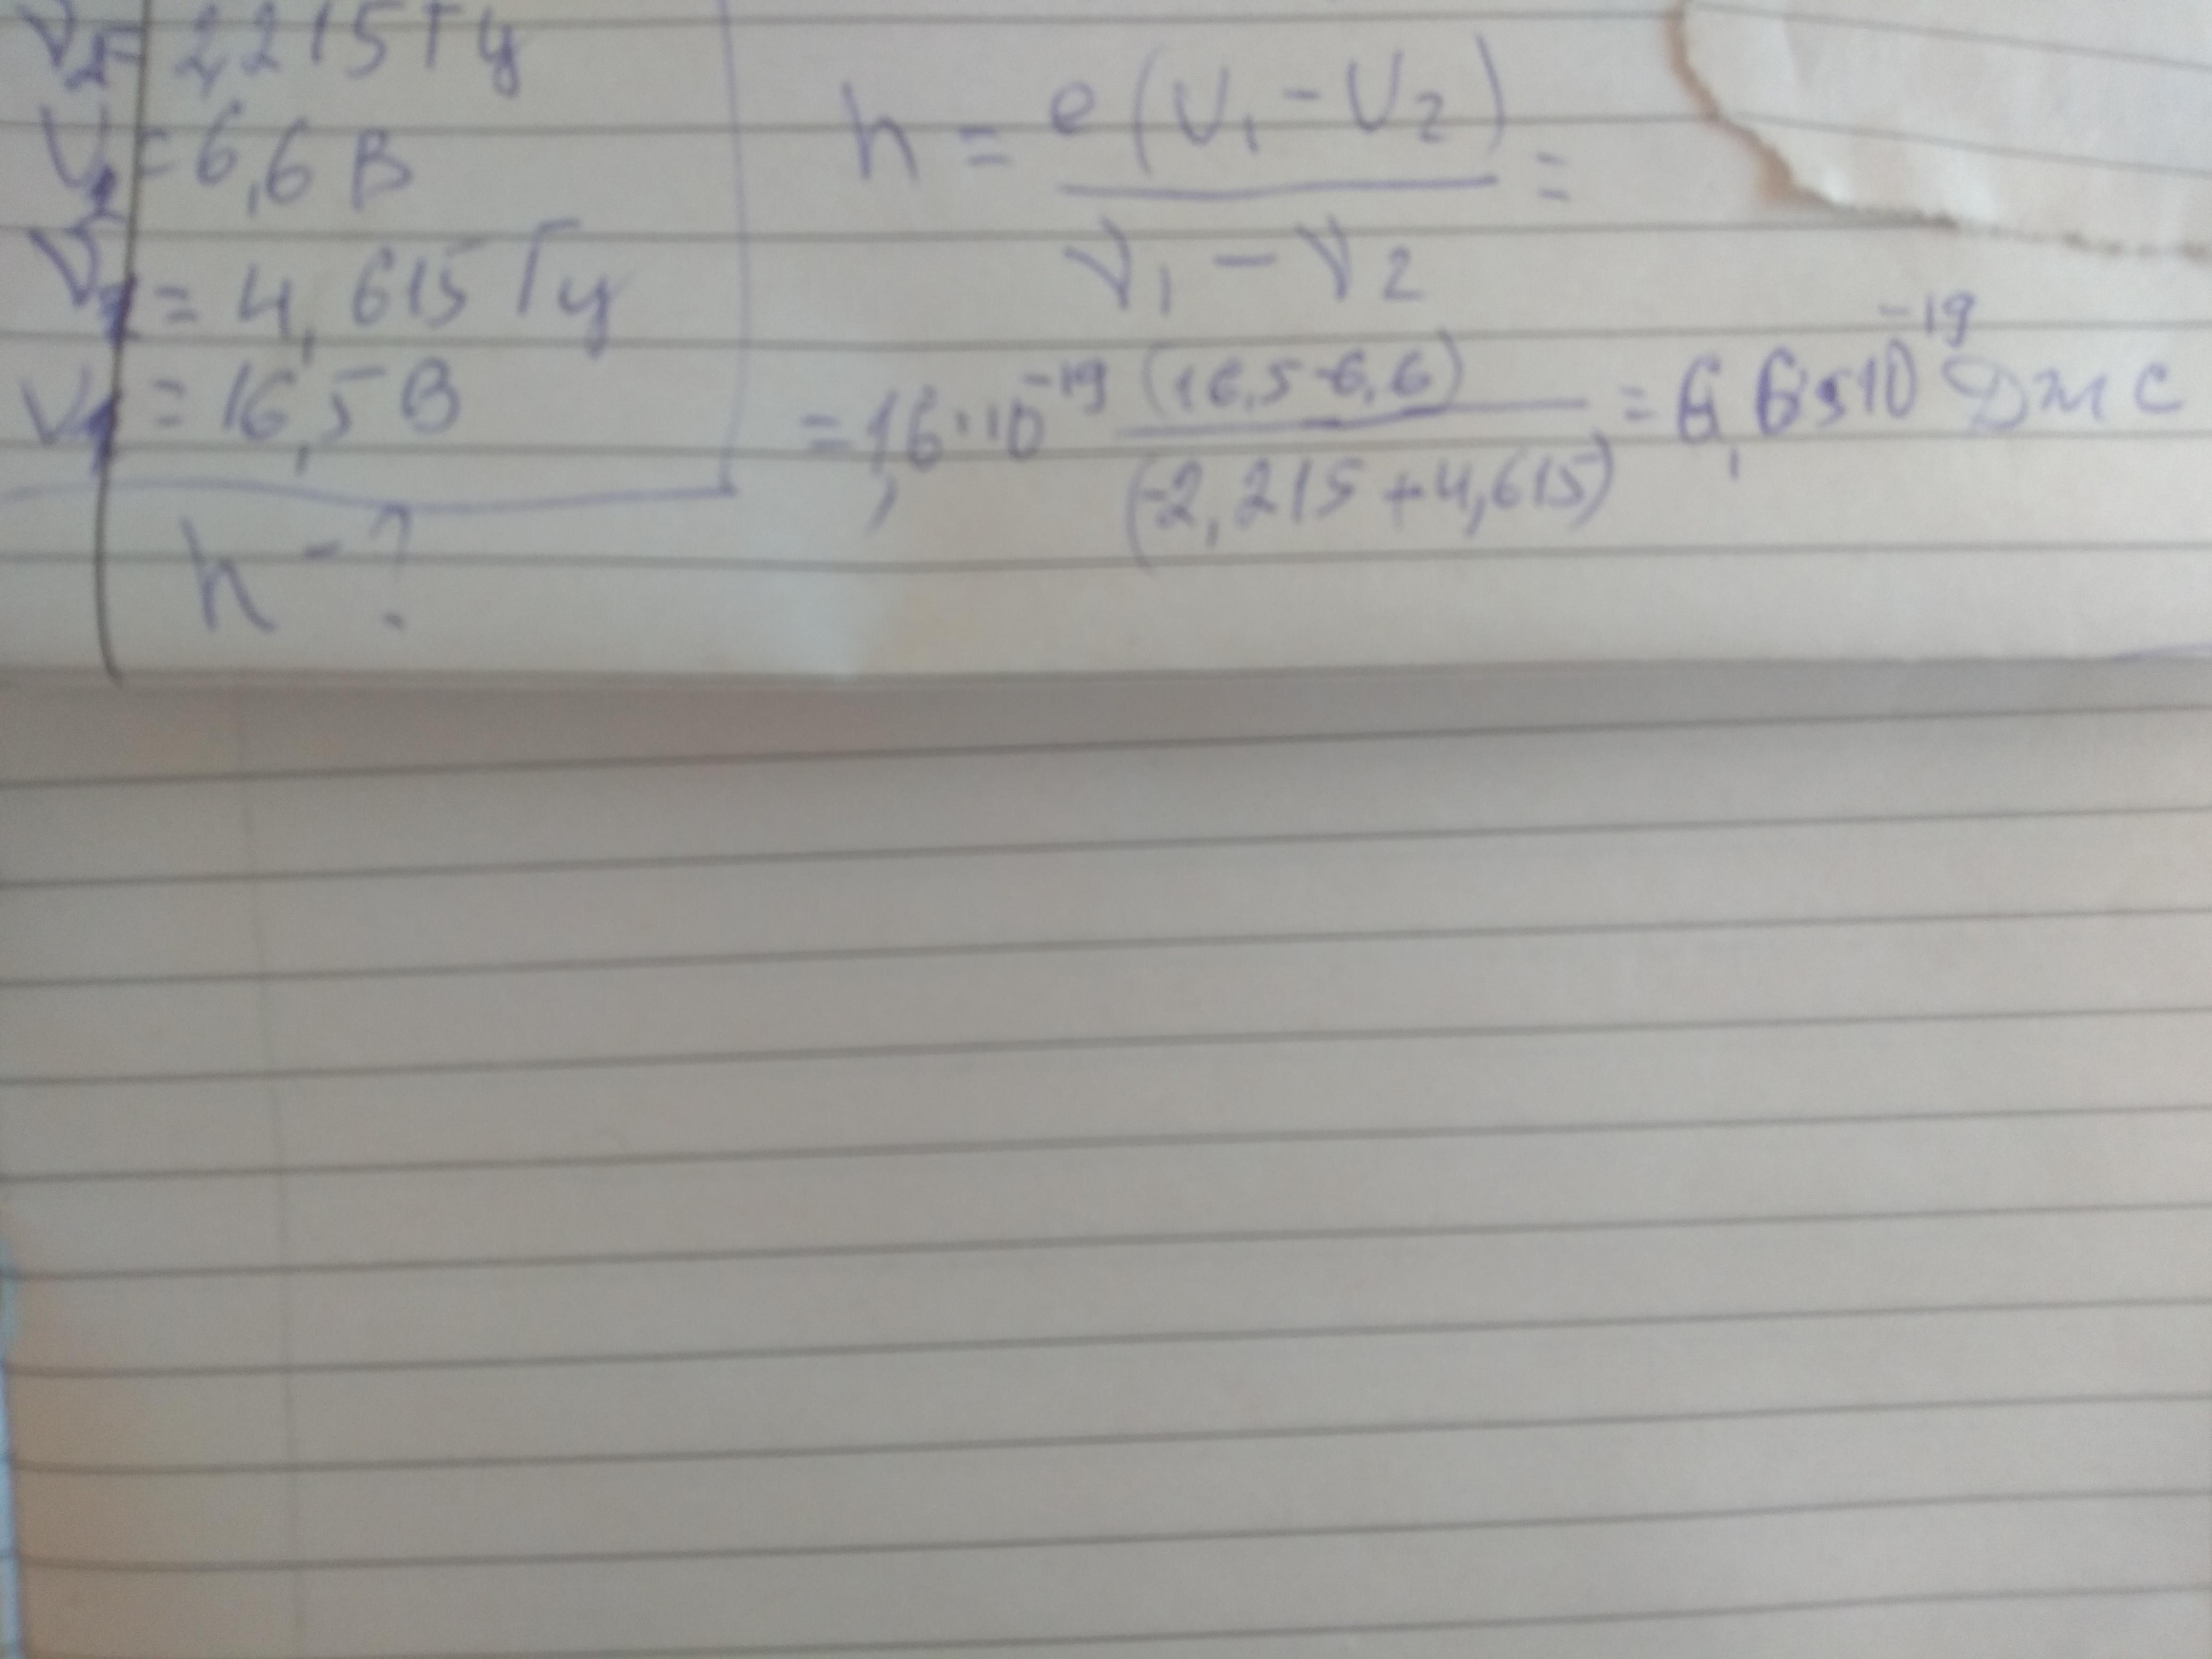 ν₂= 2,215 Гц
U₂= 6,6 В
ν₁ = 4,615 Гц
U₁ = 16,5 В
h - ?
h = e(U₁ - U₂) / ν₁ - ν₂ =
= 1,6·10⁻¹⁹ (16,5-6,6) / (-2,215 + 4,615) = 6,6·10⁻¹⁹ Дж с